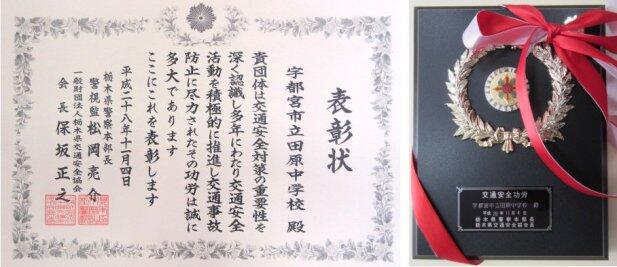 表彰状
宇都宮市立田原中学校 殿
貴団体は交通安全対策の重要性を
深く認識し多年にわたり交通安全
活動を積極的に推進し交通事故
防止に尽力されたその功労は誠に
多大であります
ここにこれを表彰します
平成二十八年十一月四日
栃木県警察本部長
警視監 松岡亮介
一般財団法人栃木県交通安全協会
会長 保坂正之
交通安全功労
宇都宮市立田原中学校 殿
平成28年11月4日
栃木県警察本部長
栃木県交通安全協会長